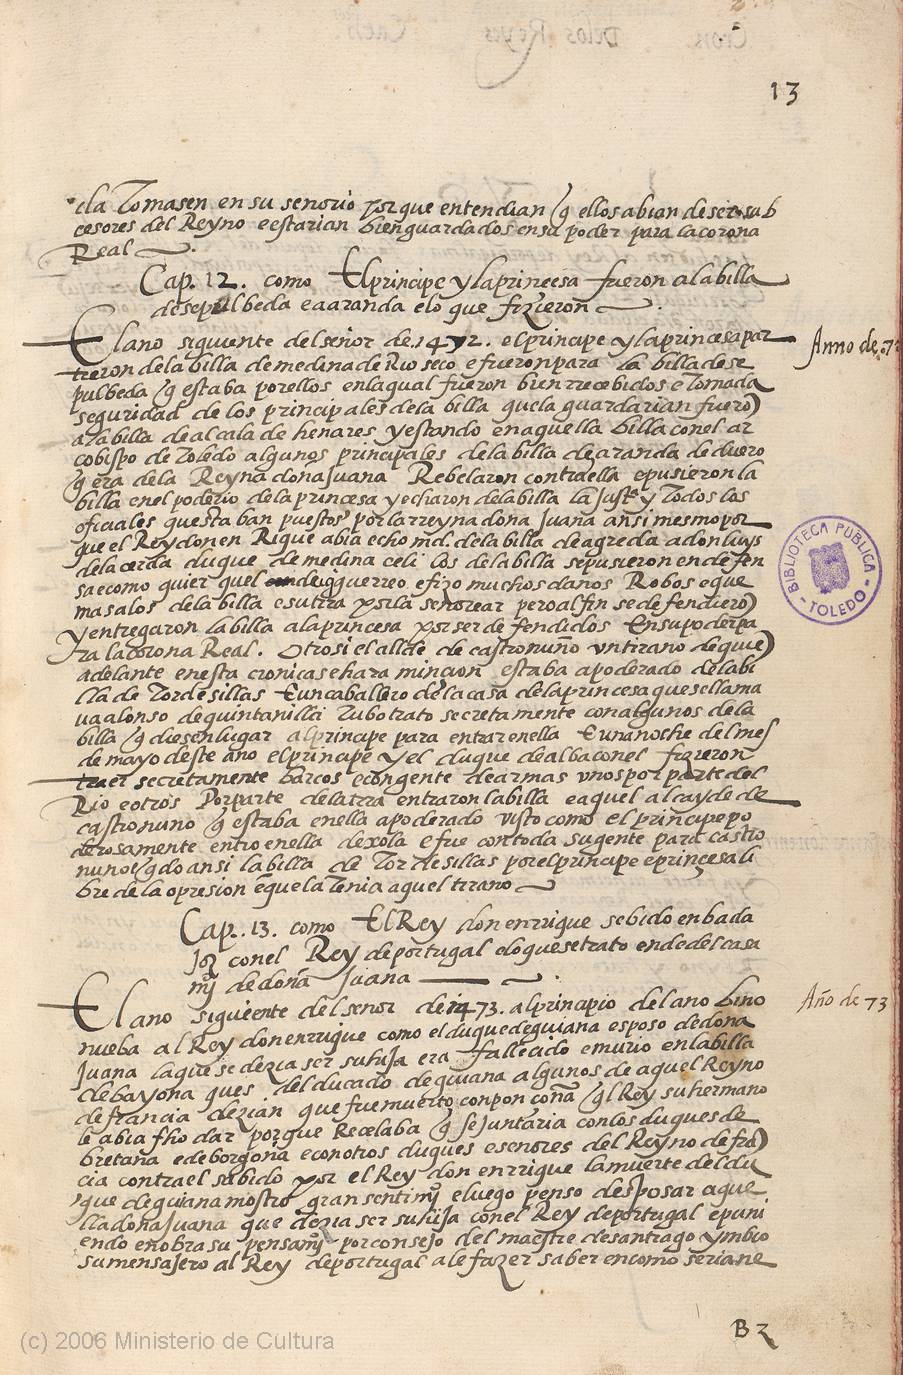 13
ella Tomasen en su senorio porque entendian q ellos abian de ser sub
cesores del Reyno e estarian bien guardados en su poder para la corona
Real
Cap. 12. como El principe y la princesa fueron a la billa
de sepulbeda e a aranda e lo que fizieron
El ano siguiente del señor de 1472. el principe y la princesa par
Anno de .72
tieron de la billa de medina de Rio seco e fueron para la billa de se
pulbeda q estaba por ellos en la qual fueron bien rrecebidos e tomada
seguridad de los principales de la billa que la guardarian fuero)
a la billa de alcala de henares y estando en aquella billa con el ar
cobispo de toledo algunos principales de la billa de aranda de duero
q era de la Reyna dona Juana Rebelaron contra ella e pusieron la
billa en el poderio de la princesa y echaron de la billa la Just.a y Todos los
oficiales que estaban puestos por la rreyna dona Juana ansi mesmo por
que el Rey don en Rique abia echo md. de la billa de agreda a don luys
de la cerda duque de medina celi los de la billa se pusieron en defen
sa e como quier quel duq guerreo e fizo muchos danos Robos e que
mas a los de la billa e su trra por la señorear pero al fin se defendiero)
y entregaron la billa a la princesa por ser defendidos En su poder pa
ra la corona Real. Otrosi el allde de castronuño un tirano de quie)
adelante en esta cronica se hara mincion estaba apoderado de la bi
lla de Tordesillas E un caballero de la casa de la princesa que se llama
va alonso de quintanilla tubo trato secretamente con algunos de la
billa q diesen lugar al principe para entrar en ella E una noche del mes
de mayo deste ano el principe y el duque de alba con el fizieron
traer secretamente barcos e con gente de armas unos por parte del
Rio e otros Por parte de la trra entraron la billa e aquel alcayde de
castronuno q estaba en ella apoderado visto como el principe po
derosamente entro en ella dexola e fue con toda su gente para castro
nuno e qdo ansi la billa de Tordesillas por el principe e princesa li
bre de la opresion en que la Tenia aquel tirano
Cap. 13. como El Rey don enrrique se bido en bada
Joz con el Rey de portugal e lo que se trato ende del casa
mj de doña Juana
El ano siguiente del senor de 1473. al principio del ano bino
Año de 73
nueba al Rey don enrrique como el duque de guiana esposo de dona
Juana la que se dezia ser su hija era fallecido e murio en la billa
de bayona ques del ducado de guiana algunos de aquel Reyno
de francia dezian que fue muerto con ponçoña q el Rey su hermano
le abia fho dar porque Recelaba q se Juntaria con los duques de
bretaña e de borgoña e con otros duques e senores del Reyno de fra)
cia contra el sabido por el Rey don enrrique la muerte del du
que de guiana mostro gran sentimj e luego penso desposar aque
lla dona Juana que dezia ser su hija con el Rey de portugal e puni
endo en obra su pensamj por consejo del maestre de santiago ymbio
su mensajero al Rey de portugal a le fazer saber en como seria ne
B 2
BIBLIOTECA PUBLICA
TOLEDO
(c) 2006 Ministerio de Cultura